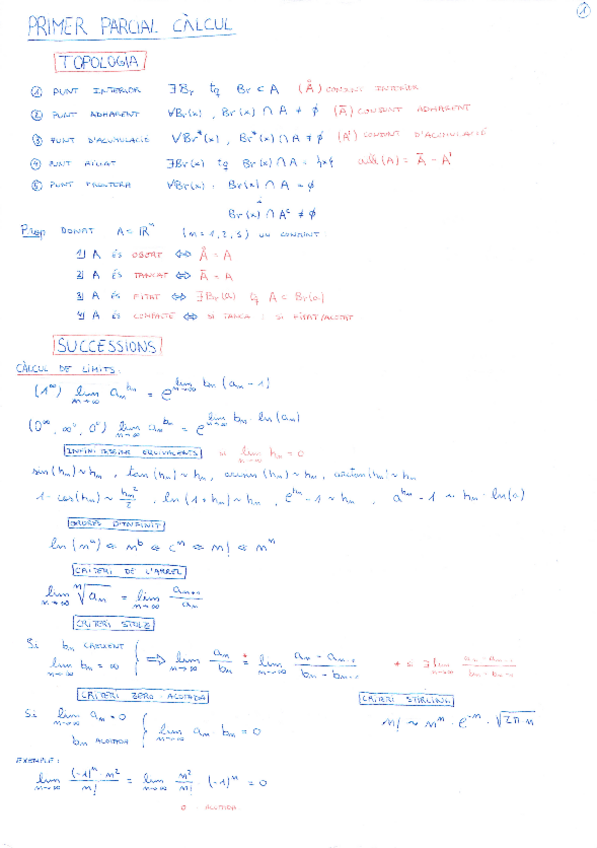 1
PRIMER PARCIAL CÀLCUL
TOPOLOGIA
① PUNT INTERIOR ∃Br tq Br ⊂ A (Å) CONJUNT INTERIOR
② PUNT ADHERENT ∀Br(x), Br(x) ∩ A ≠ ∅ (Ā) CONJUNT ADHERENT
③ PUNT D'ACUMULACIÓ ∀Br*(x), Br*(x) ∩ A ≠ ∅ (A') CONJUNT D'ACUMULACIÓ
④ PUNT AÏLLAT ∃Br(x) tq Br(x) ∩ A = {x} (A) = Ā - A'
⑤ PUNT FRONTERA ∀Br(x), Br(x) ∩ A ≠ ∅
i
Br(x) ∩ Aᶜ ≠ ∅
Prop DONAT A ⊂ ℝⁿ (n = 1, 2, 3) UN CONJUNT:
1) A ÉS OBERT ⇔ Å = A
2) A ÉS TANCAT ⇔ Ā = A
3) A ÉS FITAT ⇔ ∃Br(a) tq A ⊂ Br(a)
4) A ÉS COMPACTE ⇔ SI TANCAT I SI FITAT/ACOTAT
SUCCESSIONS
CÀLCUL DE LÍMITS:
(1^∞) lim n→∞ aₙ^bₙ = e^(lim n→∞ bₙ(aₙ - 1))
(0^∞, ∞⁰, 0⁰) lim n→∞ aₙ^bₙ = e^(lim n→∞ bₙ ln(aₙ))
INFINITÈSIMS EQUIVALENTS si lim n→∞ hₙ = 0
sin(hₙ) ~ hₙ, tan(hₙ) ~ hₙ, arcsin(hₙ) ~ hₙ, arctan(hₙ) ~ hₙ
1 - cos(hₙ) ~ hₙ²/2, ln(1 + hₙ) ~ hₙ, e^hₙ - 1 ~ hₙ, a^hₙ - 1 ~ hₙ · ln(a)
ORDRES D'INFINIT
ln(nᵃ) << nᵇ << cⁿ << n! << nⁿ
CRITERI DE L'ARREL
lim n→∞ ⁿ√aₙ = lim n→∞ aₙ₊₁/aₙ
CRITERI STOLZ
Si bₙ CREIXENT
lim n→∞ bₙ = ∞ } ⇒ lim n→∞ aₙ/bₙ =* lim n→∞ (aₙ - aₙ₋₁)/(bₙ - bₙ₋₁) * si ∃ lim n→∞ (aₙ - aₙ₋₁)/(bₙ - bₙ₋₁)
CRITERI ZERO · ACOTADA CRITERI STIRLING
Si lim n→∞ aₙ = 0
bₙ ACOTADA } lim n→∞ aₙ bₙ = 0 n! ~ nⁿ · e⁻ⁿ · √(2π·n)
EXEMPLE:
lim n→∞ ((-1)ⁿ · n²)/n! = lim n→∞ n²/n! · (-1)ⁿ = 0
0 · ACOTADA